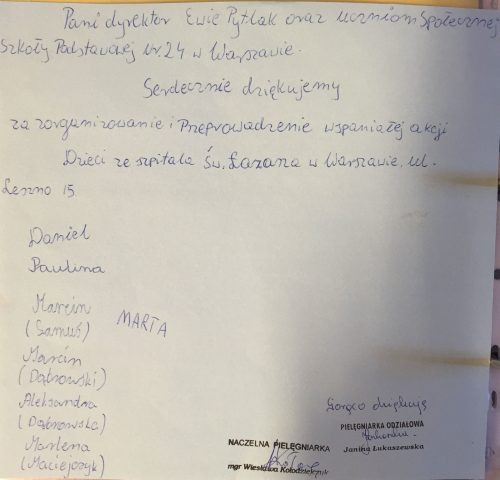 Pani dyrektor Ewie Pytlak oraz uczniom Społecznej
Szkoły Podstawowej nr 24 w Warszawie.
Serdecznie dziękujemy
za zorganizowanie i Przeprowadzenie wspaniałej akcji
Dzieci ze szpitala Św. Łazarza w Warszawie, ul.
Leszno 15
Daniel
Paulina
Marcin
(Samuś)
MARTA
Marcin
(Dąbrowski)
Aleksandra
(Dąbrowska)
Marlena
(Maciejczyk)
Gorąco dziękuję
PIELĘGNIARKA ODZIAŁOWA
Janina Łukaszewska
NACZELNA PIELĘGNIARKA
mgr Wiesława Kołodziejczyk